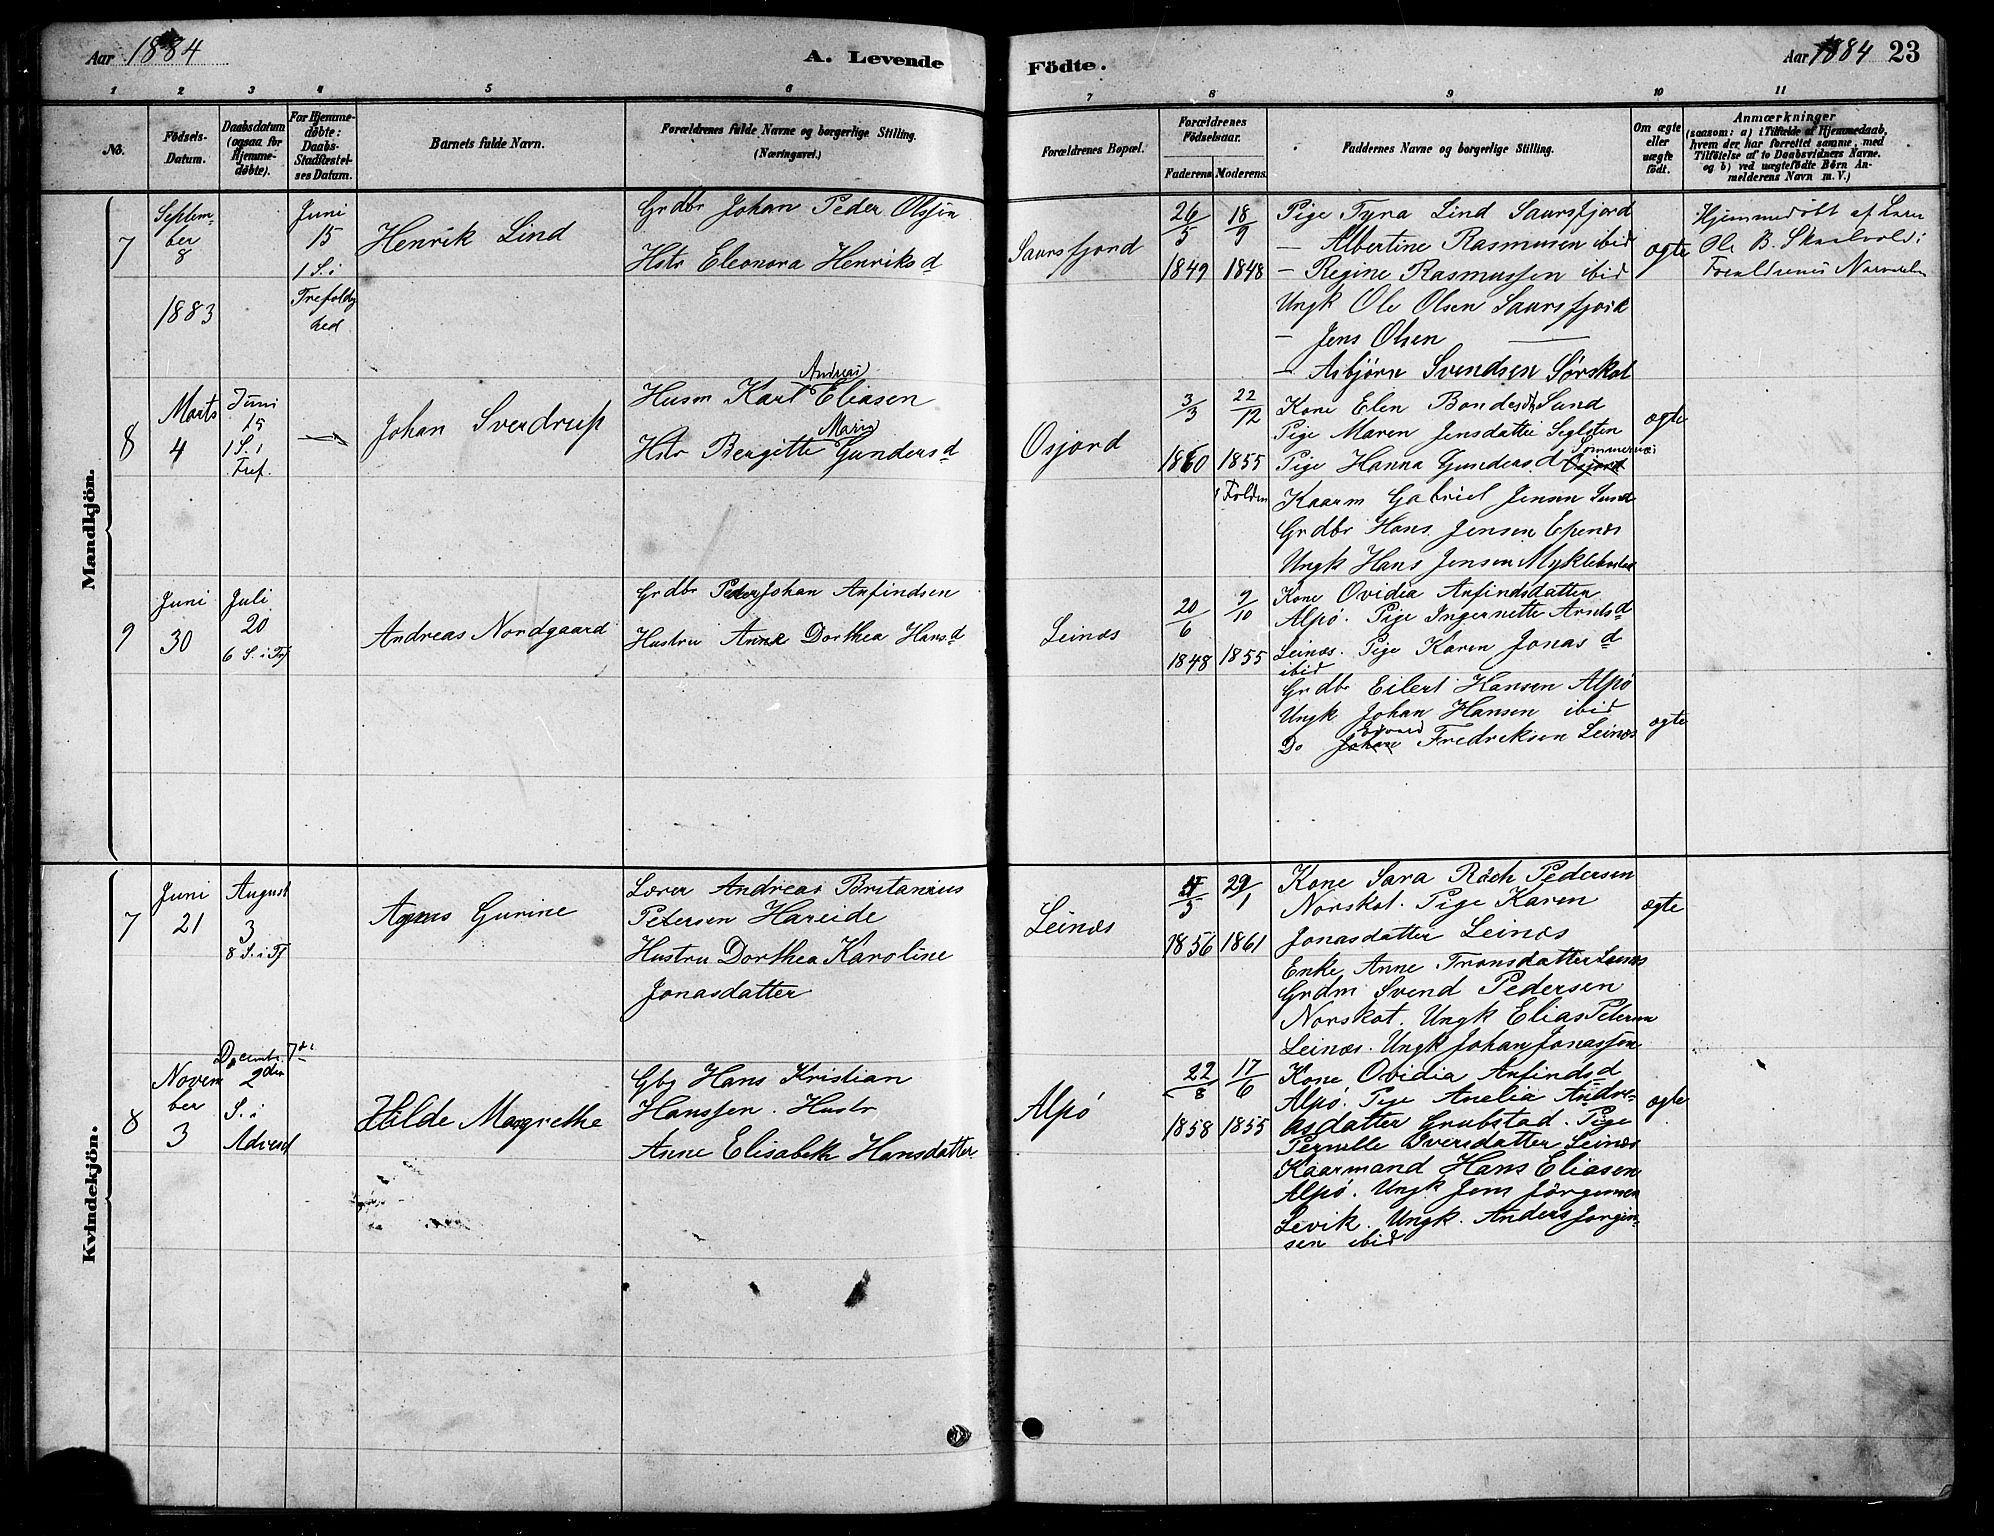 Aar 1884
A. Levende
Födte.
Aar 1884 23
1 2 3 4 5 6
7 8 9 10 11
No.
Födsels-
Datum.
Daabsdatum
(ogsaa for
Hjemme-
døbte).
For Hjemme-
døbte:
Daabs-
Stadfæstel-
ses Datum.
Barnets fulde Navn.
Forældrenes fulde Navne og borgerlige Stilling.
(Næringsvei.)
Forældrenes Bopæl.
Forældrenes
Fødselsaar.
Faderens
Moderens
Faddernes Navne og borgerlige Stilling.
Om ægte
eller
uægte
født.
Anmærkninger
(saasom: a) i Tilfælde af Hjemmedaab,
hvem der har forrettet samme, med
Tilføielse af to Daabsvidners Navne.
og b) ved uægtefødte Børn An-
melderens Navn m. V.)
Mandkjön.
7
Septem-
ber
8
1883
Juni
15
1 S. i
Trefoldig
hed
Henrik Lind
Grdbr Johan Peder Olssøn
Hstr Eleonora Henriksd
Saursfjord
26/5
1849
18/9
1848
Pige Tyra Lind Saursfjord
— Albertine Rasmusen ibid
— Regine Rasmussen ibid
Ungk Ole Olsen Saursfjord
— Jens Olsen —
— Asbjørn Svendsen Sørskot
ægte
Hjemmedøbt af Lærer
Ole B. Skaalvold i
Forældrenes Nærværelse
8
Marts
4
Juni
15
1 S. i
Tref.
Johan Sverdrup
Andreas
Husm Karl Eliasen
Maria
Hstr Bergitte Gundersd
Osjord
3/3
1860
22/12
1855
i Folden
Kone Elen Bondesdtr Sund
Pige Maren Jensdatter Seglsten
Sommernes
Pige Hanna Gundersd Osjord
Kaarm Gabriel Jensen Sund
Grdbr Hans Jensen Epenæs
Ungk Hans Jensen Myklebostad
ægte
9
Juni
30
Juli
20
6 S. i Trf
Andreas Nordgaard
Grdbr Peder Johan Anfindsen
Hustru Anne Dorthea Hansd
Leinæs
20/6
1848
9/10
1855
Kone Ovidia Anfindsdatter
Alpø. Pige Ingernette Arntsd
Leinæs. Pige Karen Jonasd
ibid
Grdbr Eilert Hansen Alpø
Ungk Johan Hansen ibid
Edvard
Do Johan Fredriksen Leinæs
ægte
Kvindekjön.
7
Juni
21
August
3
8 S. i Tf
Agnes Gurine
Lærer Andreas Britanius
Petersen Hareide
Hustru Dorthea Karoline
Jonasdatter
Leinæs
4/5
1856
29/1
1861
Kone Sara Rach Pedersen
Norskot. Pige Karen
Jonasdatter Leinæs
Enke Anne Tronsdatter Leinæs
Grdm Svend Pedersen
Norskot. Ungk Elias Petersen
Leinæs. Ungk Johan Jonassen
ægte
8
Novem
ber
3
Decembr 7de
2den
S. i
Advend
Hilde Margrethe
Gbg Hans Kristian
Hanssen. Hustr
Anne Elisabeth Hansdatter
Alpø
22/8
1858
17/6
1855
Kone Ovidia Anfindsd
Alpø. Pige Anelia Andre-
asdatter Grubstad. Pige
Pernille Iversdatter Leinæs
Kaarmand Hans Eliasen
Alpø. Ungk Jens Jörgensen
Levik. Ungk. Anders Jorgen-
sen ibid
ægte